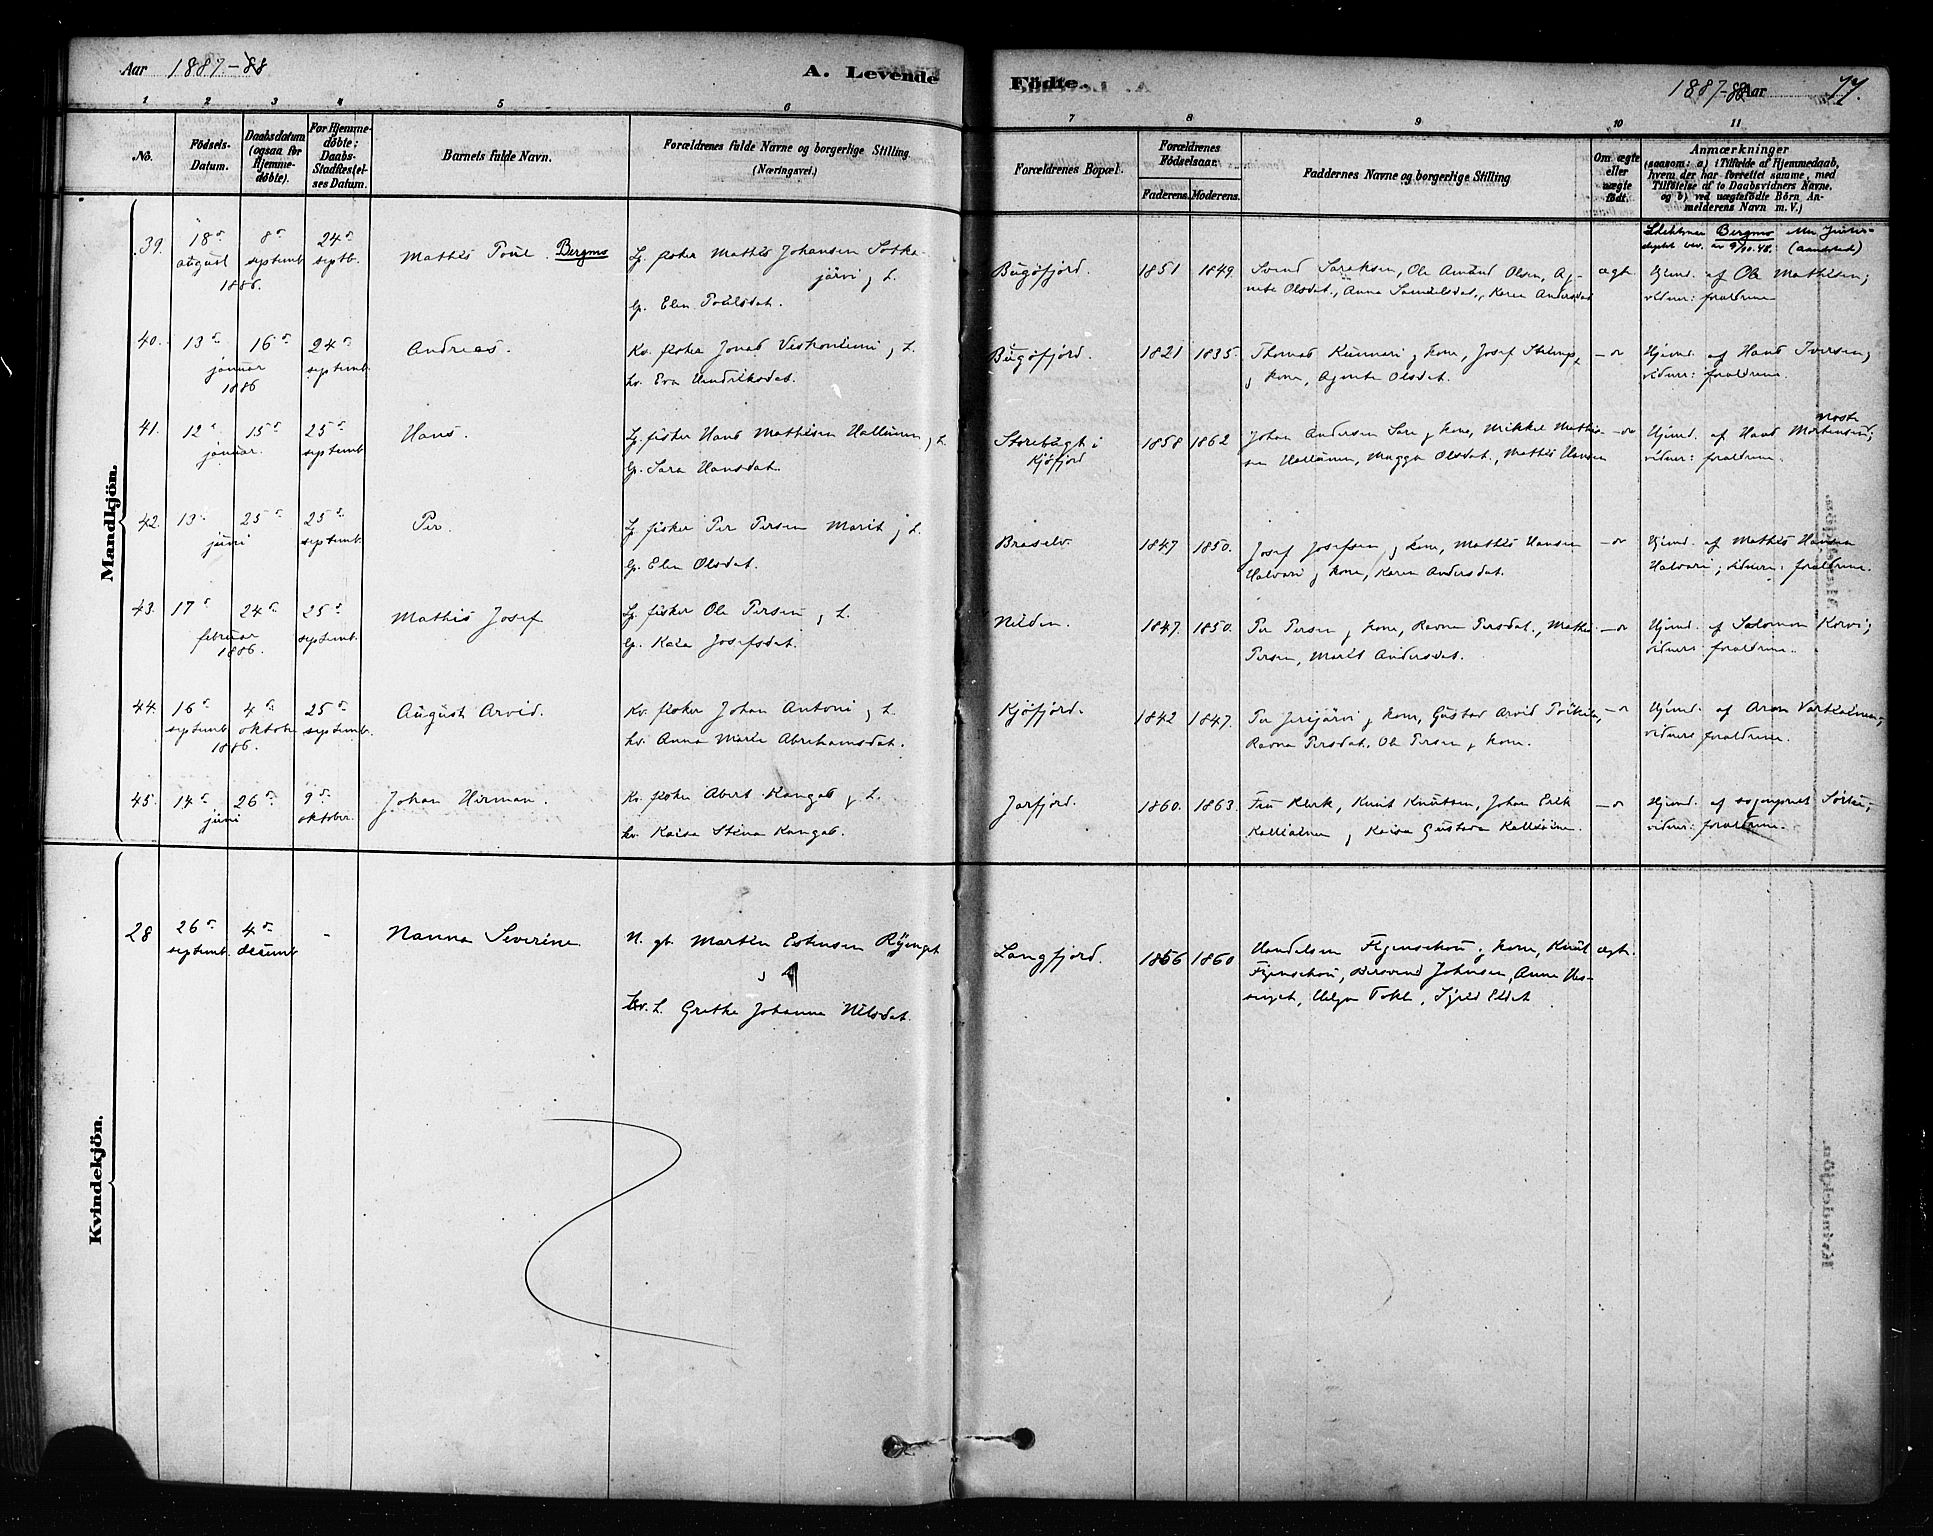 Aar 1887-88
A. Levende
Födte.
1887-88 Aar
77.
1 2 3 4 5 6 7 8 9 10 11
No.
Födsels-
Datum.
Daabsdatum
(ogsaa for
Hjemme-
döbte).
For Hjemme-
döbte;
Daabs-
Stadfæstel-
ses Datum.
Barnets fulde Navn.
Forældrenes fulde Navne og borgerlige Stilling
(Næringsvei.)
Forældrenes Bopæl.
Forældrenes
Födselsaar.
Faderens. Moderens.
Faddernes Navne og borgerlige Stilling
Om ægte
eller
uægte
födt.
Anmærkninger
(saasom: a) i Tilfælde af Hjemmedaab,
hvem der har forrettet samme, med
Tilföielse af to Daabsvidners Navne,
og b) ved uægtefödte Börn An-
melderens Navn m. V.)
Mandkjön.
39. 18de august 1886. 8de septemb. 24de septb. Mathis Poul. Bergmo
Lp. fisker Mathis Johansen Sotka-
järvi & h.
lp. Elen Poulsdat.
Bugöfjord. 1851 1849.
Svend Sareksen, Ole Amund Olsen, Ag-
nete Olsdat., Anna Samuelsdat., Karen Andersdat
ægt.
Slektsnavn Bergmo
bev. av 9/10.48. (Aanstad)
Hjemd. af Ole Mathisen;
vidner: forældrene
40. 13de januar 1886 16de 24de septemb. Andreas.
Kv. fisker Jonas Veskoniemi & h.
kv. Eva Hendriksdat.
Bugöfjord. 1821 1835.
Thomas Kunnari & kone, Josef
& kone, Agnete Olsdat.
-o-
Hjemd. af Hans Iversen;
vidner: forældrene.
41. 12te januar. 15de 25de septemb. Hans.
Lp. fisker Hans Mathisen Hallunen & h.
lp. Sara Hansdat.
Storebugt i
Kjöfjord
1858 1862
Johan Andersen Sare & kone, Mikkel Mathi-
sen Hallunen, Magga Olsdat., Mathis Hansen
-o-
Hjemd. af Hans Mortensen;
vidner: forældrene.
42. 13de juni 25de 25de septemb. Per.
Lp. fisker Per Persen Marit & h.
lp. Elen Olsdat.
Braselv. 1847 1850.
Josef Josefsen & kone, Mathis Hansen
Halvari & kone, Karen Andersdat.
-o-
Hjemd. af Mathis Hansen
Halvari; vidner: forældrene.
43. 17de februar 1886. 24de 25de septemb. Mathis Josef
Lp. fisker Ole Persen & h.
lp. Kaia Josefsdat.
Neiden. 1847. 1850.
Per Persen & kone, Ravna Persdat., Mathis
Persen, Marit Andersdat.
-o-
Hjemd. af Salomon Korvi;
vidner: forældrene.
44. 16de septemb. 1886. 4de oktobr. 25de septemb. August Arvid.
Kv. fisker Johan Antoni & h.
kv. Anna Maria Abrahamsdat.
Kjöfjord. 1842 1847.
Per Jerijärvi & kone, Gustav Arvid
Ravna Persdat. Ole Persen & kone.
-o-
Hjemd. af Aron
vidner: forældrene.
45. 14de juni 26de 9de oktober. Johan Herman.
Kv. fisker Abert Kangas & h.
kv. Kaisa Stina Kangas.
Jarfjord. 1860. 1863.
Fru Klerk, Knut Knutsen, Johan Erik
Kalliainen & Kaisa Gustava Kalliainen.
-o-
Hjemd. af sogneprest
vidner: forældrene.
Kvindekjön.
28 26de septemb. 4de decemb. - Nanna Severine
N. gb. Martin Esbensen
& h
kv. h. Grethe Johanna Nilsdat.
Langfjord. 1856 1860
Handelsm. Figenschou & kone, Knut
Figenschou, Johnsen, Anne
Helga
ægt.